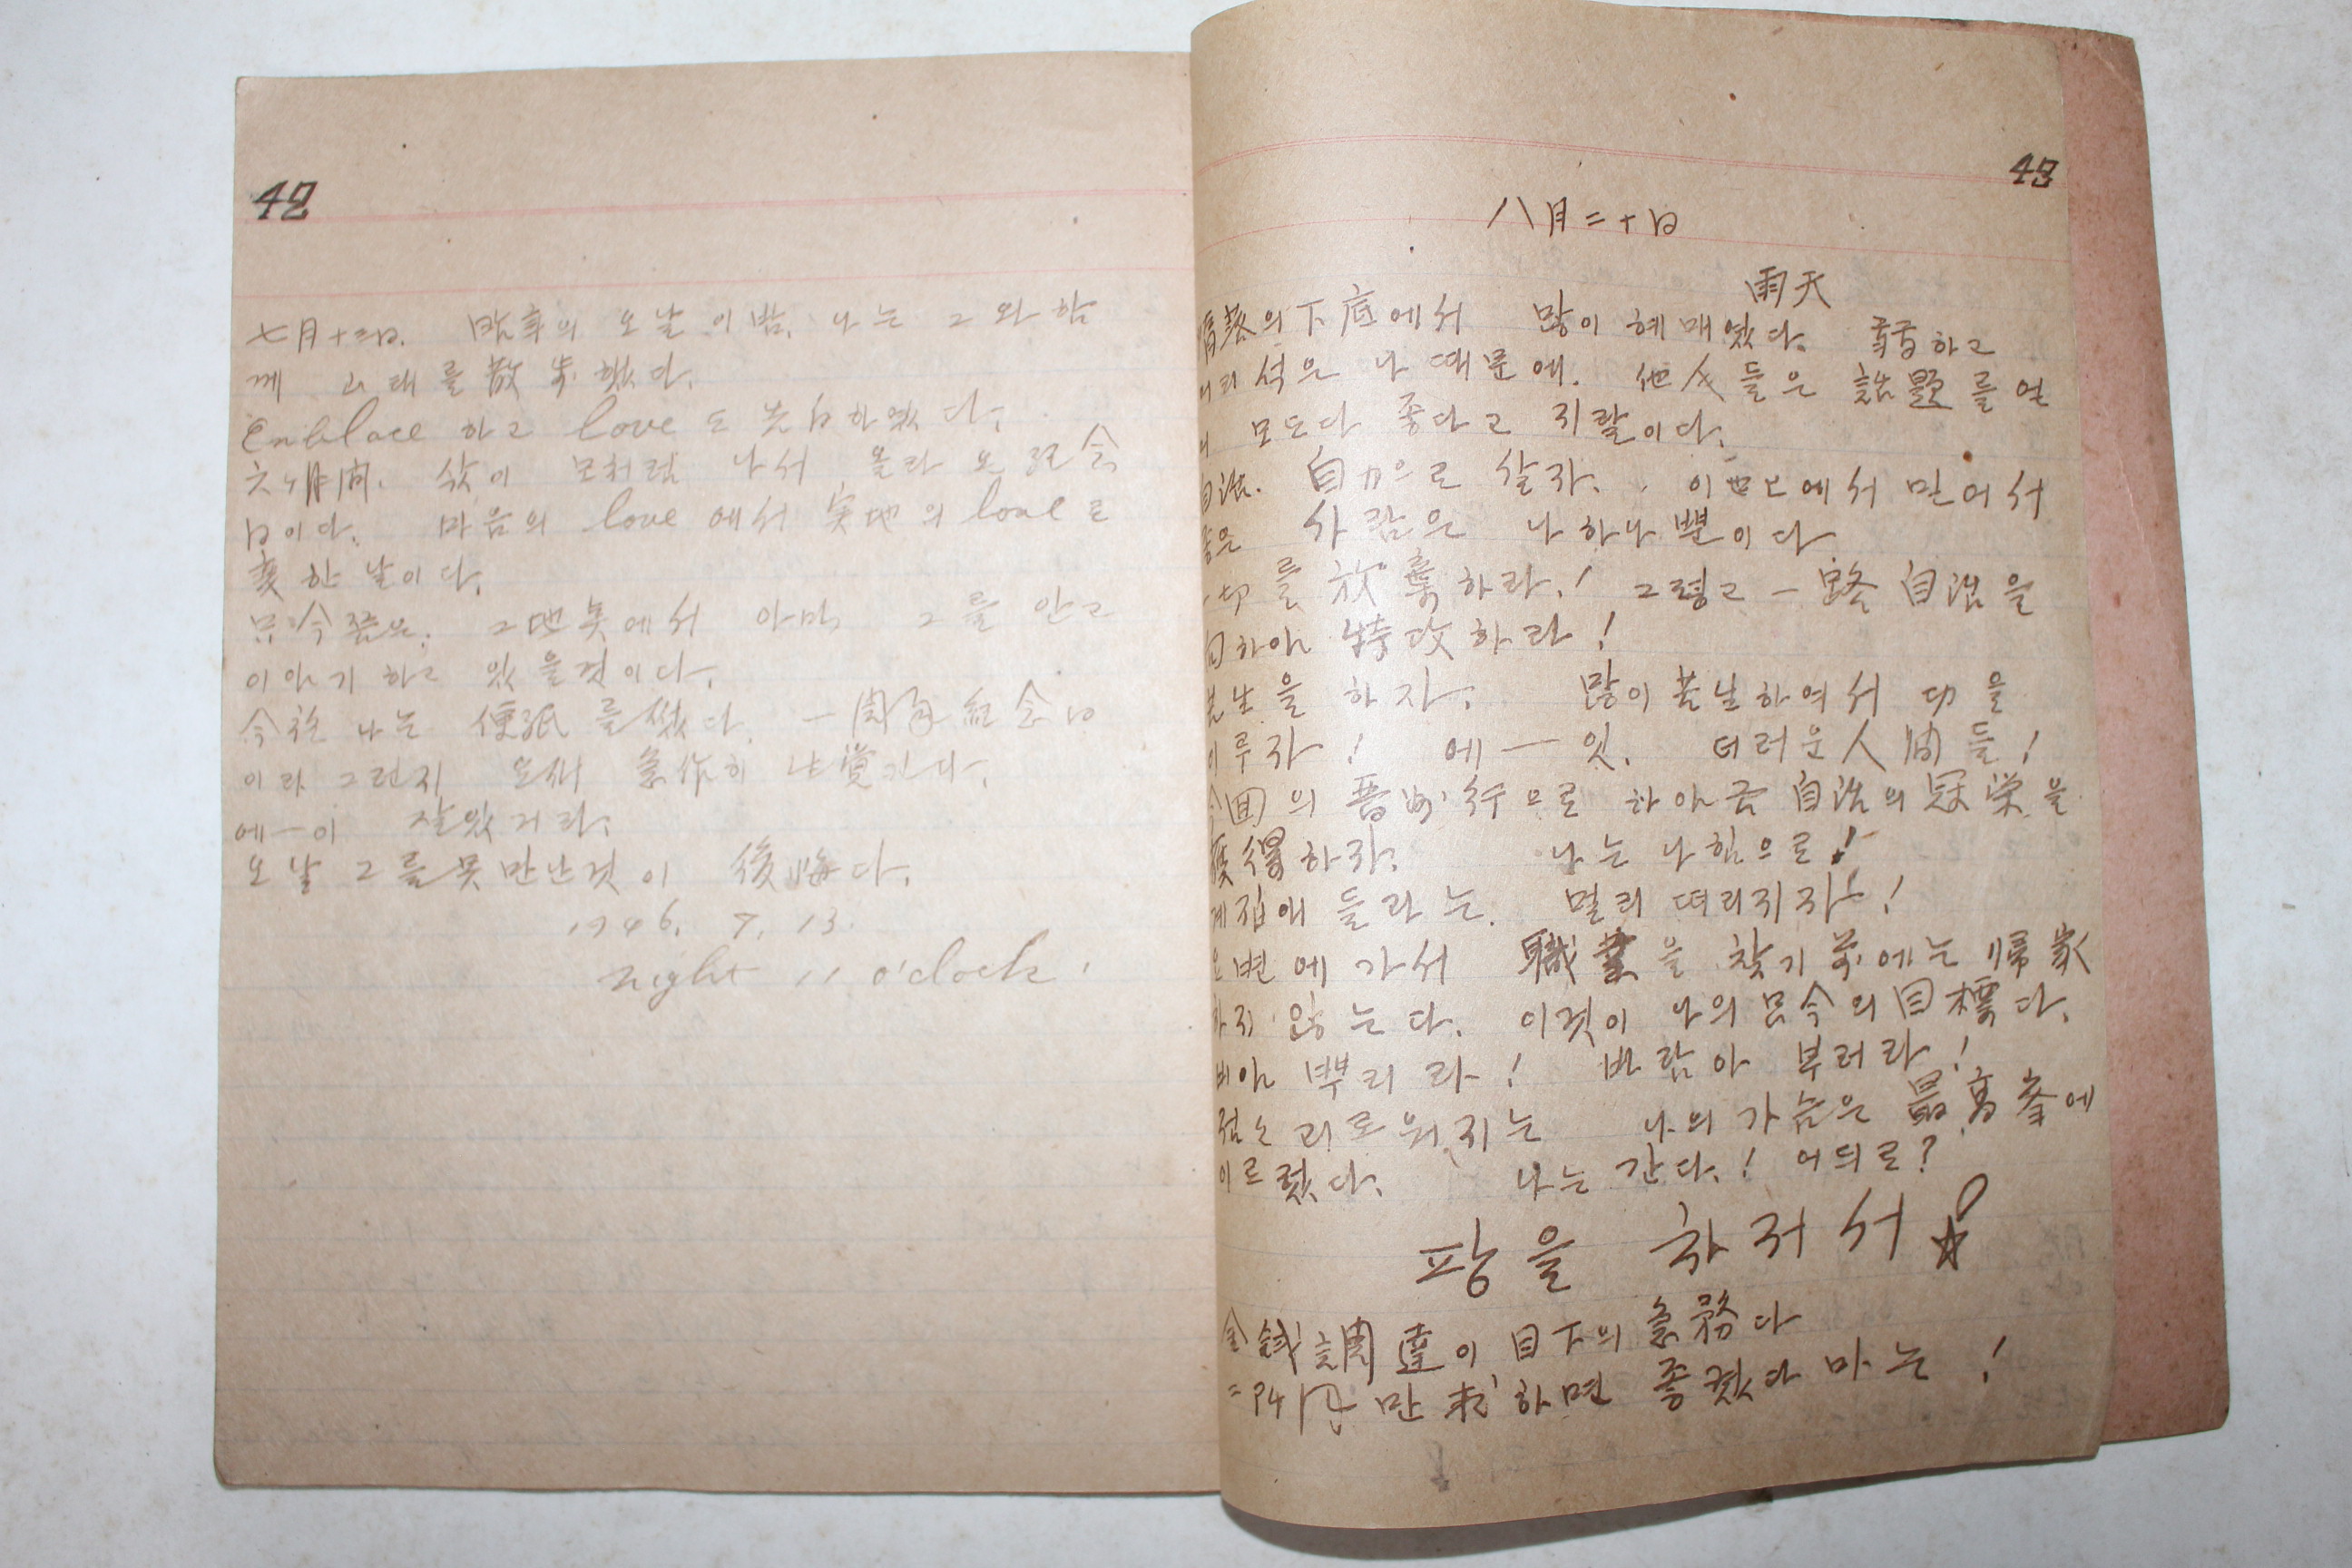 42
七月十三日. 昨年의 오날 이밤. 나는 그와 함
께 고태를 散步했다.
Emblace 하고 love도 告白하였다.
六個月間. 싹이 모처럼 나서 올라오 記念
日이다. 마음의 love에서 実地의 love로
変한 날이다.
只今쯤은. 그地点에서 아마 그를 안고
이야기하고 있을것이다.
今夜 나는 便紙를 썼다. 一周年紀念日
이라 그런지 急作히 生覚키다.
에一이 잘있거라.
오날 그를 못만난것이 後悔다.
1946. 7. 13.
Night 11 o'clock.
43
八月二十日
雨天
의 下底에서 많이 헤매였다. 弱하고
어리석은 나 때문에. 他人들은 話題를 얻
어 모도다 좋다고 지랄이다.
自活. 自力으로 살자. 이世上에서 믿어서
좋은 사람은 나 하나뿐이다
一切를 放棄하라! 그렇고 一路 自活을
向하야 特攻하라!
苦生을 하자. 많이 苦生하여서 功을
이루자! 에一잇. 더러운 人間들!
今回의 晋州行으로 하야금 自活의 冠栄을
獲得하자. 나는 나힘으로!
게집애들과는 멀리 떠러지자!
변에 가서 職業을 찾기前에는 帰家
하지 않는다. 이것이 나의 只今의 目標다.
비야 뿌리라! 바람아 부러라!
점점 괴로워지는 나의 가슴은 最高峯에
이르렀다. 나는 간다! 어듸로?
팡을 차저서!
金銭調達이 目下의 急務다
二四円만 求하면 좋겠다마는!